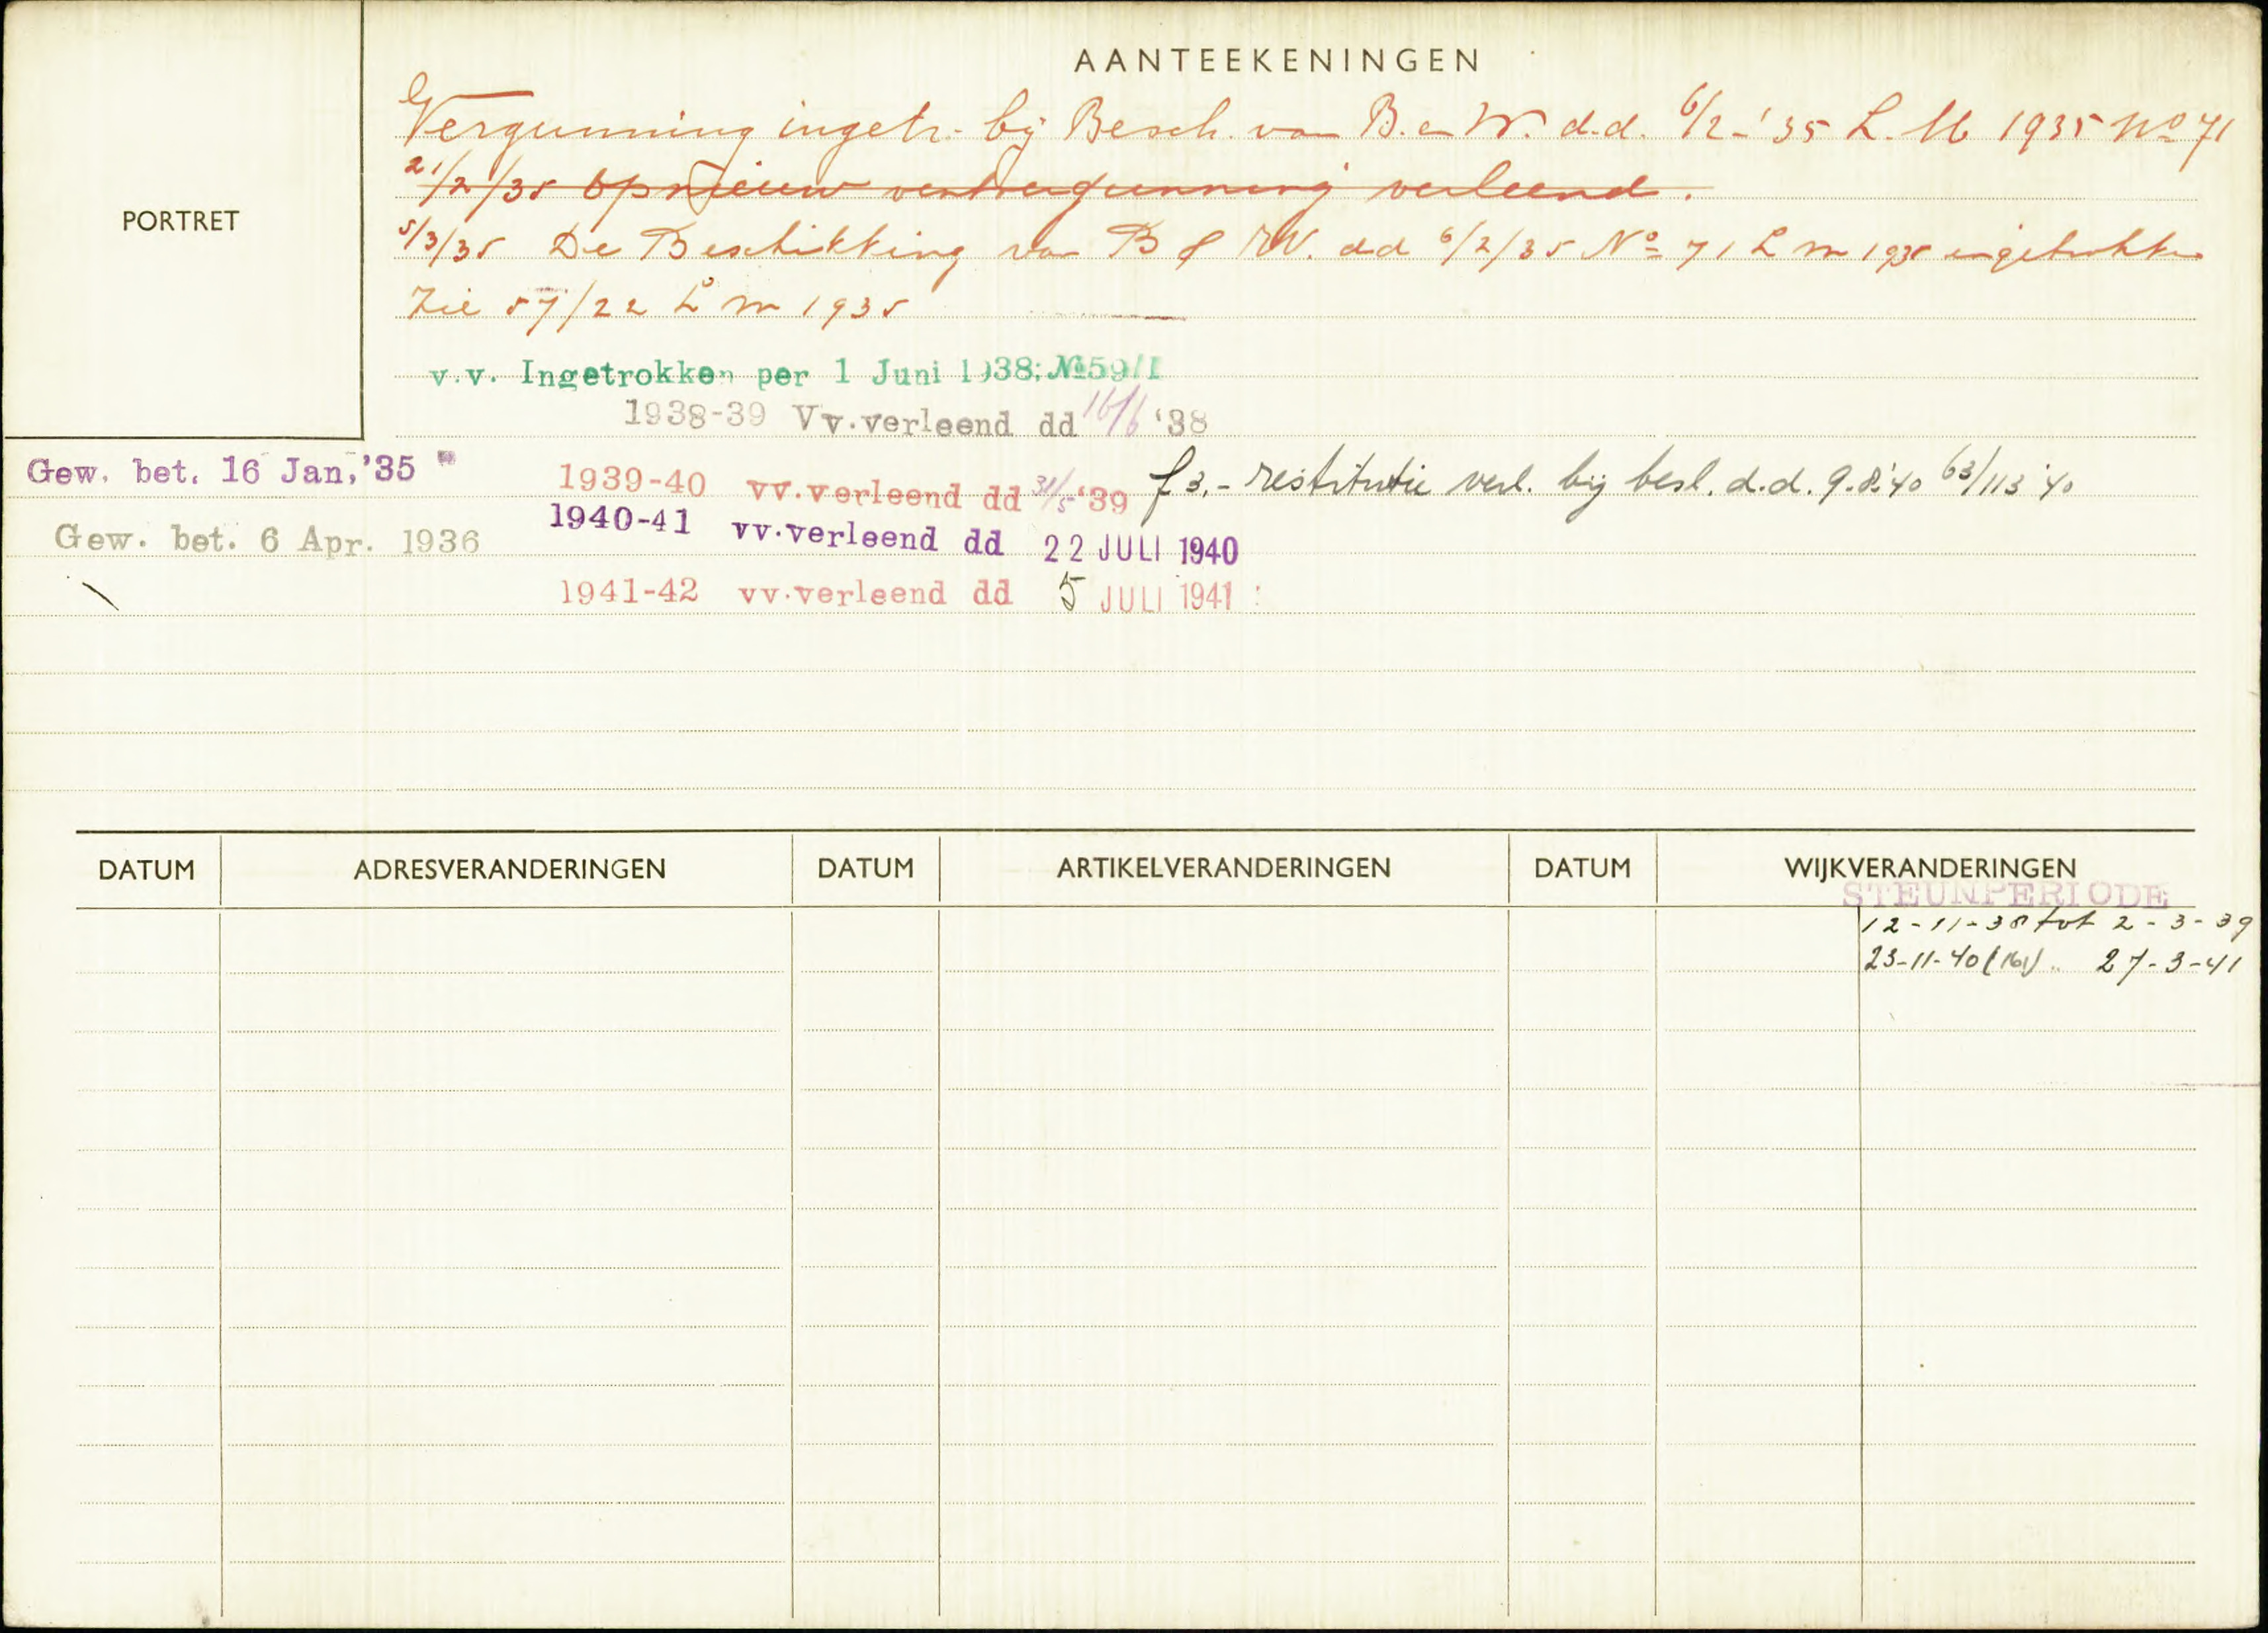 AANTEEKENINGEN
PORTRET
Vergunning ingetr. bij Besch. van B. en W. d.d. 6/2-'35 L. M 1935 No 71
21/2/35 Opnieuw ventvergunning verleend.
5/3/35 De Beschikking van B & W. dd 6/2/35 No 71 L M 1935 ingetrokken
Zie 57/22 L M 1935
v.v. Ingetrokken per 1 Juni 1938; No 59/1
1938-39 Vv.verleend dd 16/6 '38
Gew. bet. 16 Jan. '35
1939-40 vv.verleend dd 31/5 '39 f 3.- restitutie verl. bij besl. d.d. 9-8-'40 63/113 '40
1940-41 vv.verleend dd 22 JULI 1940
Gew. bet. 6 Apr. 1936
1941-42 vv.verleend dd 5 JULI 1941
DATUM ADRESVERANDERINGEN DATUM ARTIKELVERANDERINGEN DATUM WIJKVERANDERINGEN
STEUNPERIODE
12-11-38 tot 2-3-39
23-11-40 (161) .. 27-3-41